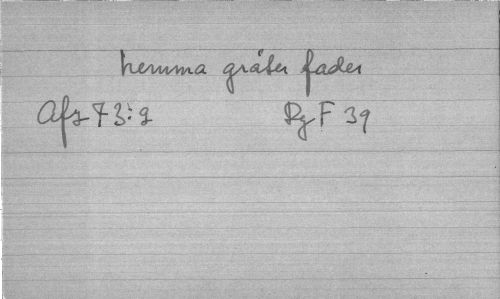 hemma gråter fader
Afz 73:2 Rg F 39